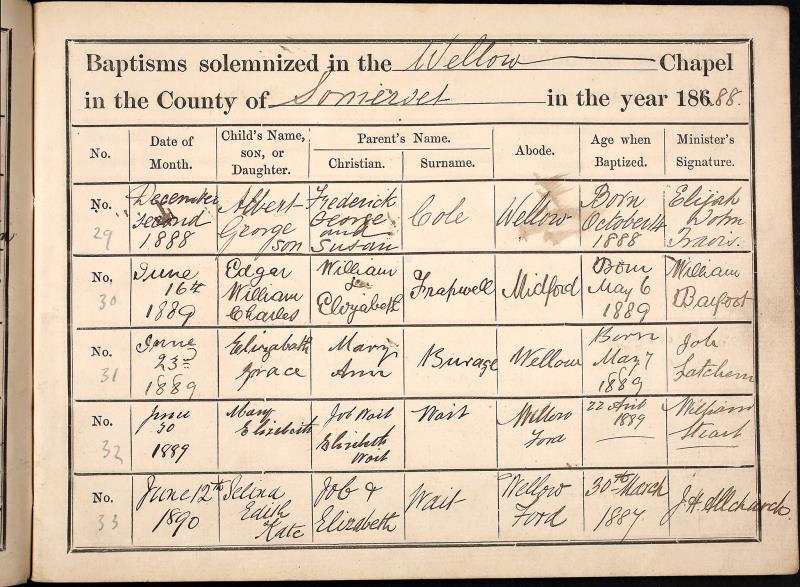 Baptisms solemnized in the Wellow Chapel
in the County of Somerset in the year 18688.
No. Date of Month. Child's Name, SON, or Daughter. Parent's Name. Christian. Surname. Abode. Age when Baptized. Minister's Signature.
No. 29 December second 1888 Albert George son Frederick George and Susan Cole Wellow Born October 14 1888 Elijah Travis.
No. 30 June 16th 1889 Edgar William Charles William & Elizabeth Frapwell Midford Born May 6 1889 William Barfoot
No. 31 June 23rd 1889 Elizabeth Grace Mary Ann Burage Wellow Born May 7 1889 Job Latchem
No. 32 June 30 1889 Mary Elizabeth Job Wait Elizabeth Wait Wait Wellow Ford 22 April 1889 William Stuart
No. 33 June 12th 1890 Selina Edith Kate Job & Elizabeth Wait Wellow Ford 30th March 1887. J. H.